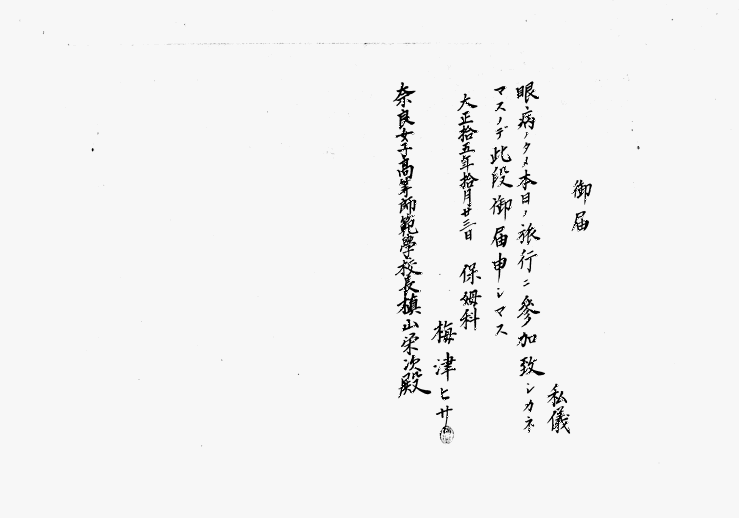 御届
私儀
眼病ノタメ本日ノ旅行ニ参加致シカネ
マスノデ此段御届申シマス
大正拾五年拾月廿三日
保姆科
梅津ヒサ
奈良女子高等師範學校長槙山栄次殿